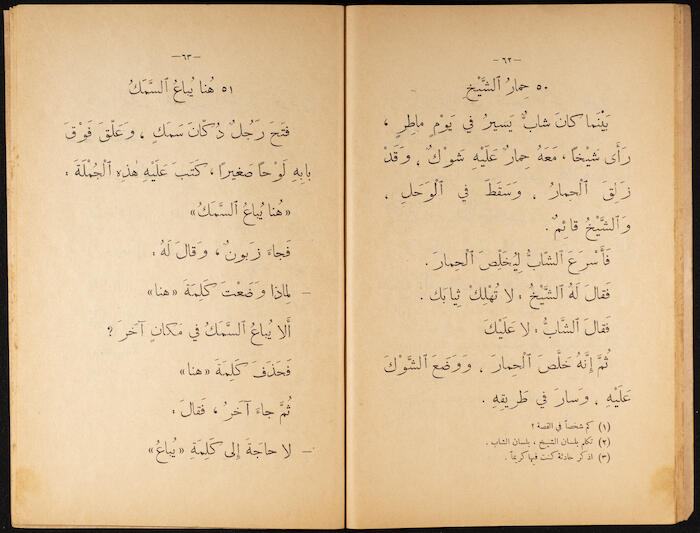 —٦٢—
٥٠ حِمارُ ٱلشَّيْخِ
بَيْنَما كانَ شابٌّ يَسيرُ في يَوْمٍ ماطِرٍ ،
رَأَى شَيْخًا ، مَعَهُ حِمارٌ عَلَيْهِ شَوْكٌ ، وَقَدْ
زَلِقَ ٱلْحِمارُ ، وَسَقَطَ في ٱلْوَحَلِ ،
وَٱلشَّيْخُ قائِمٌ .
فَأَسْرَعَ ٱلشّابُّ لِيُخَلِّصَ ٱلْحِمارَ .
فَقالَ لَهُ ٱلشَّيْخُ : لا تُهْلِكْ ثِيابَك .
فَقالَ ٱلشّابُّ : لا عَلَيْكَ
ثُمَّ إِنَّهُ خَلَّصَ ٱلْحِمارَ ، وَوَضَعَ ٱلشَّوْكَ
عَلَيْهِ ، وَسارَ في طَريقِهِ .
(١) كم شخصاً في القصة ؟
(٢) تكلم بلسان الشيخ ، بلسان الشاب .
(٣) اذكر حادثة كنت فيها كريماً .
—٦٣—
٥١ هُنا يُباعُ ٱلسَّمَكُ
فَتَحَ رَجُلٌ دُكّانَ سَمَكٍ ، وَعَلَّقَ فَوْقَ
بابِهِ لَوْحًا صَغيرًا ، كَتَبَ عَلَيْهِ هٰذِهِ ٱلْجُمْلَةَ :
«هُنا يُباعُ ٱلسَّمَكُ»
فَجاءَ زَبونٌ ، وَقالَ لَهُ :
— لِماذا وَضَعْتَ كَلِمَةَ «هنا»
أَلا يُباعُ ٱلسَّمَكُ في مَكانٍ آخَرَ ؟
فَحَذَفَ كَلِمَةَ «هنا»
ثُمَّ جاءَ آخَرُ ، فَقالَ :
— لا حاجَةَ إِلى كَلِمَةِ «يُباعُ»